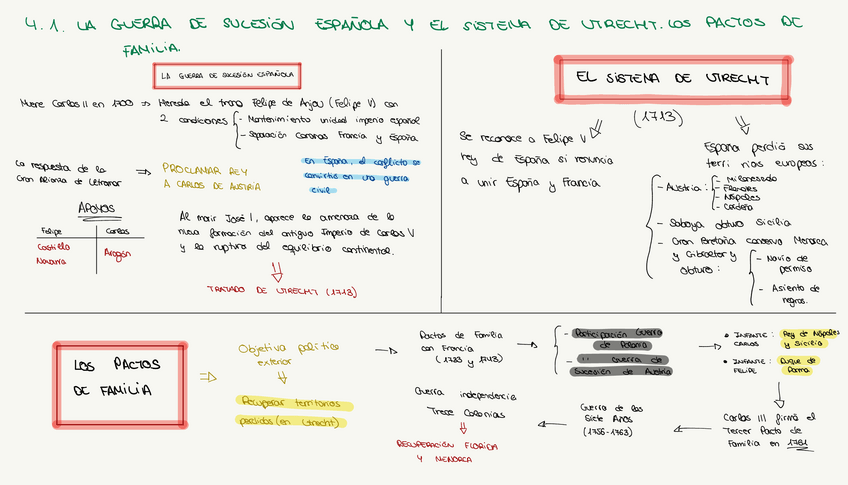 4.1. LA GUERRA DE SUCESIÓN ESPAÑOLA Y EL SISTEMA DE UTRECHT. LOS PACTOS DE
FAMILIA.
LA GUERRA DE SUCESIÓN ESPAÑOLA
Muere Carlos II en 1700 => Hereda el trono Felipe de Anjou (Felipe V) con
2 condiciones
- Mantenimiento unidad imperio español
- Separación Coronas Francia y España
La respuesta de la
Gran Alianza de
=> PROCLAMAR REY
A CARLOS DE AUSTRIA
En España, el conflicto se
convirtió en una guerra
civil
APOYOS
Felipe
Carlos
Castilla
Navarra
Aragón
Al morir José I, aparece la amenaza de la
nueva formación del antiguo Imperio de Carlos V
y la ruptura del equilibrio continental.
TRATADO DE UTRECHT (1713)
EL SISTEMA DE UTRECHT
(1713)
Se reconoce a Felipe V
rey de España si renuncia
a unir España y Francia
España perdió sus
terri rios europeos:
- Austria:
- Milanesado
- Flandes
- Nápoles
- Cerdeña
- Saboya obtuvo Sicilia
- Gran Bretaña conservó Menorca
y Gibraltar y
obtuvo:
- Navío de
permiso
- Asiento de
negros.
LOS PACTOS
DE FAMILIA
Objetivo político
exterior
Recuperar territorios
perdidos (en Utrecht)
Pactos de Familia
con Francia
(1733 y 1743)
- Participación Guerra
de Polonia
- '' Guerra de
Sucesión de Austria
• INFANTE CARLOS : Rey de Nápoles
y Sicilia
• INFANTE FELIPE : Duque de
Parma
Carlos III firmó el
Tercer Pacto de
Familia en 1761
Guerra de los
Siete Años
(1756-1763)
Guerra independencia
Trece Colonias
RECUPERACIÓN FLORIDA
Y MENORCA